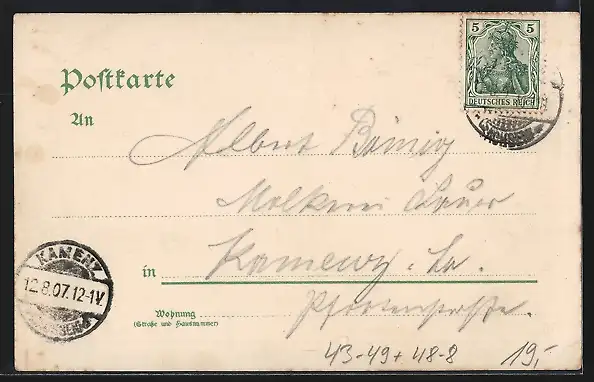 5 5
DEUTSCHES REICH
Postkarte
An
Albert
Molkerei Lauer
in Kamenz, Sa.
KAMENZ
12.8.07.12-1V.
Wohnung
(Straße und Hausnummer)
43-49+48-8
19,-